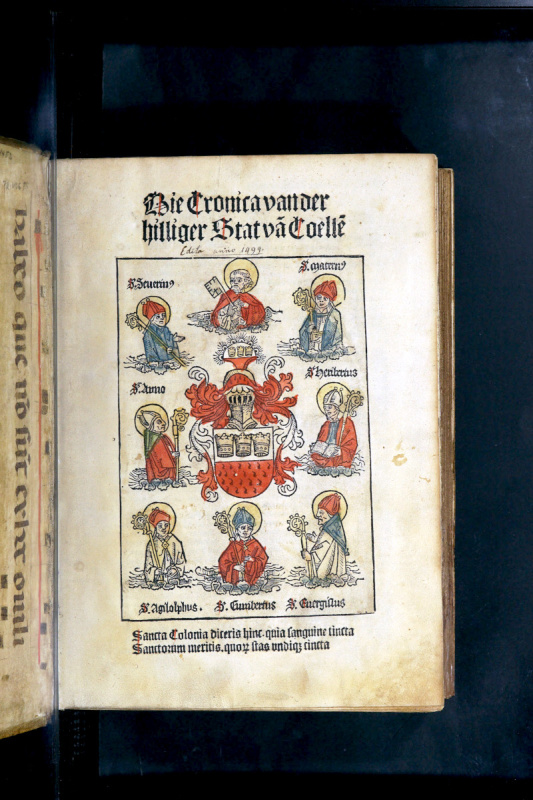 Die Cronica van der
hilliger Stat vā Coellē
Edita anno 1499.
S. Seuerin⁹
S. Matern⁹
S. Anno
S. heribertus
S. Agilolphus.
S. Cunibertus
S. Euergislus
Sancta Colonia diceris hinc. quia sanguine tincta
Sanctorum meritis. quoꝝ stas vndiqꝫ cincta